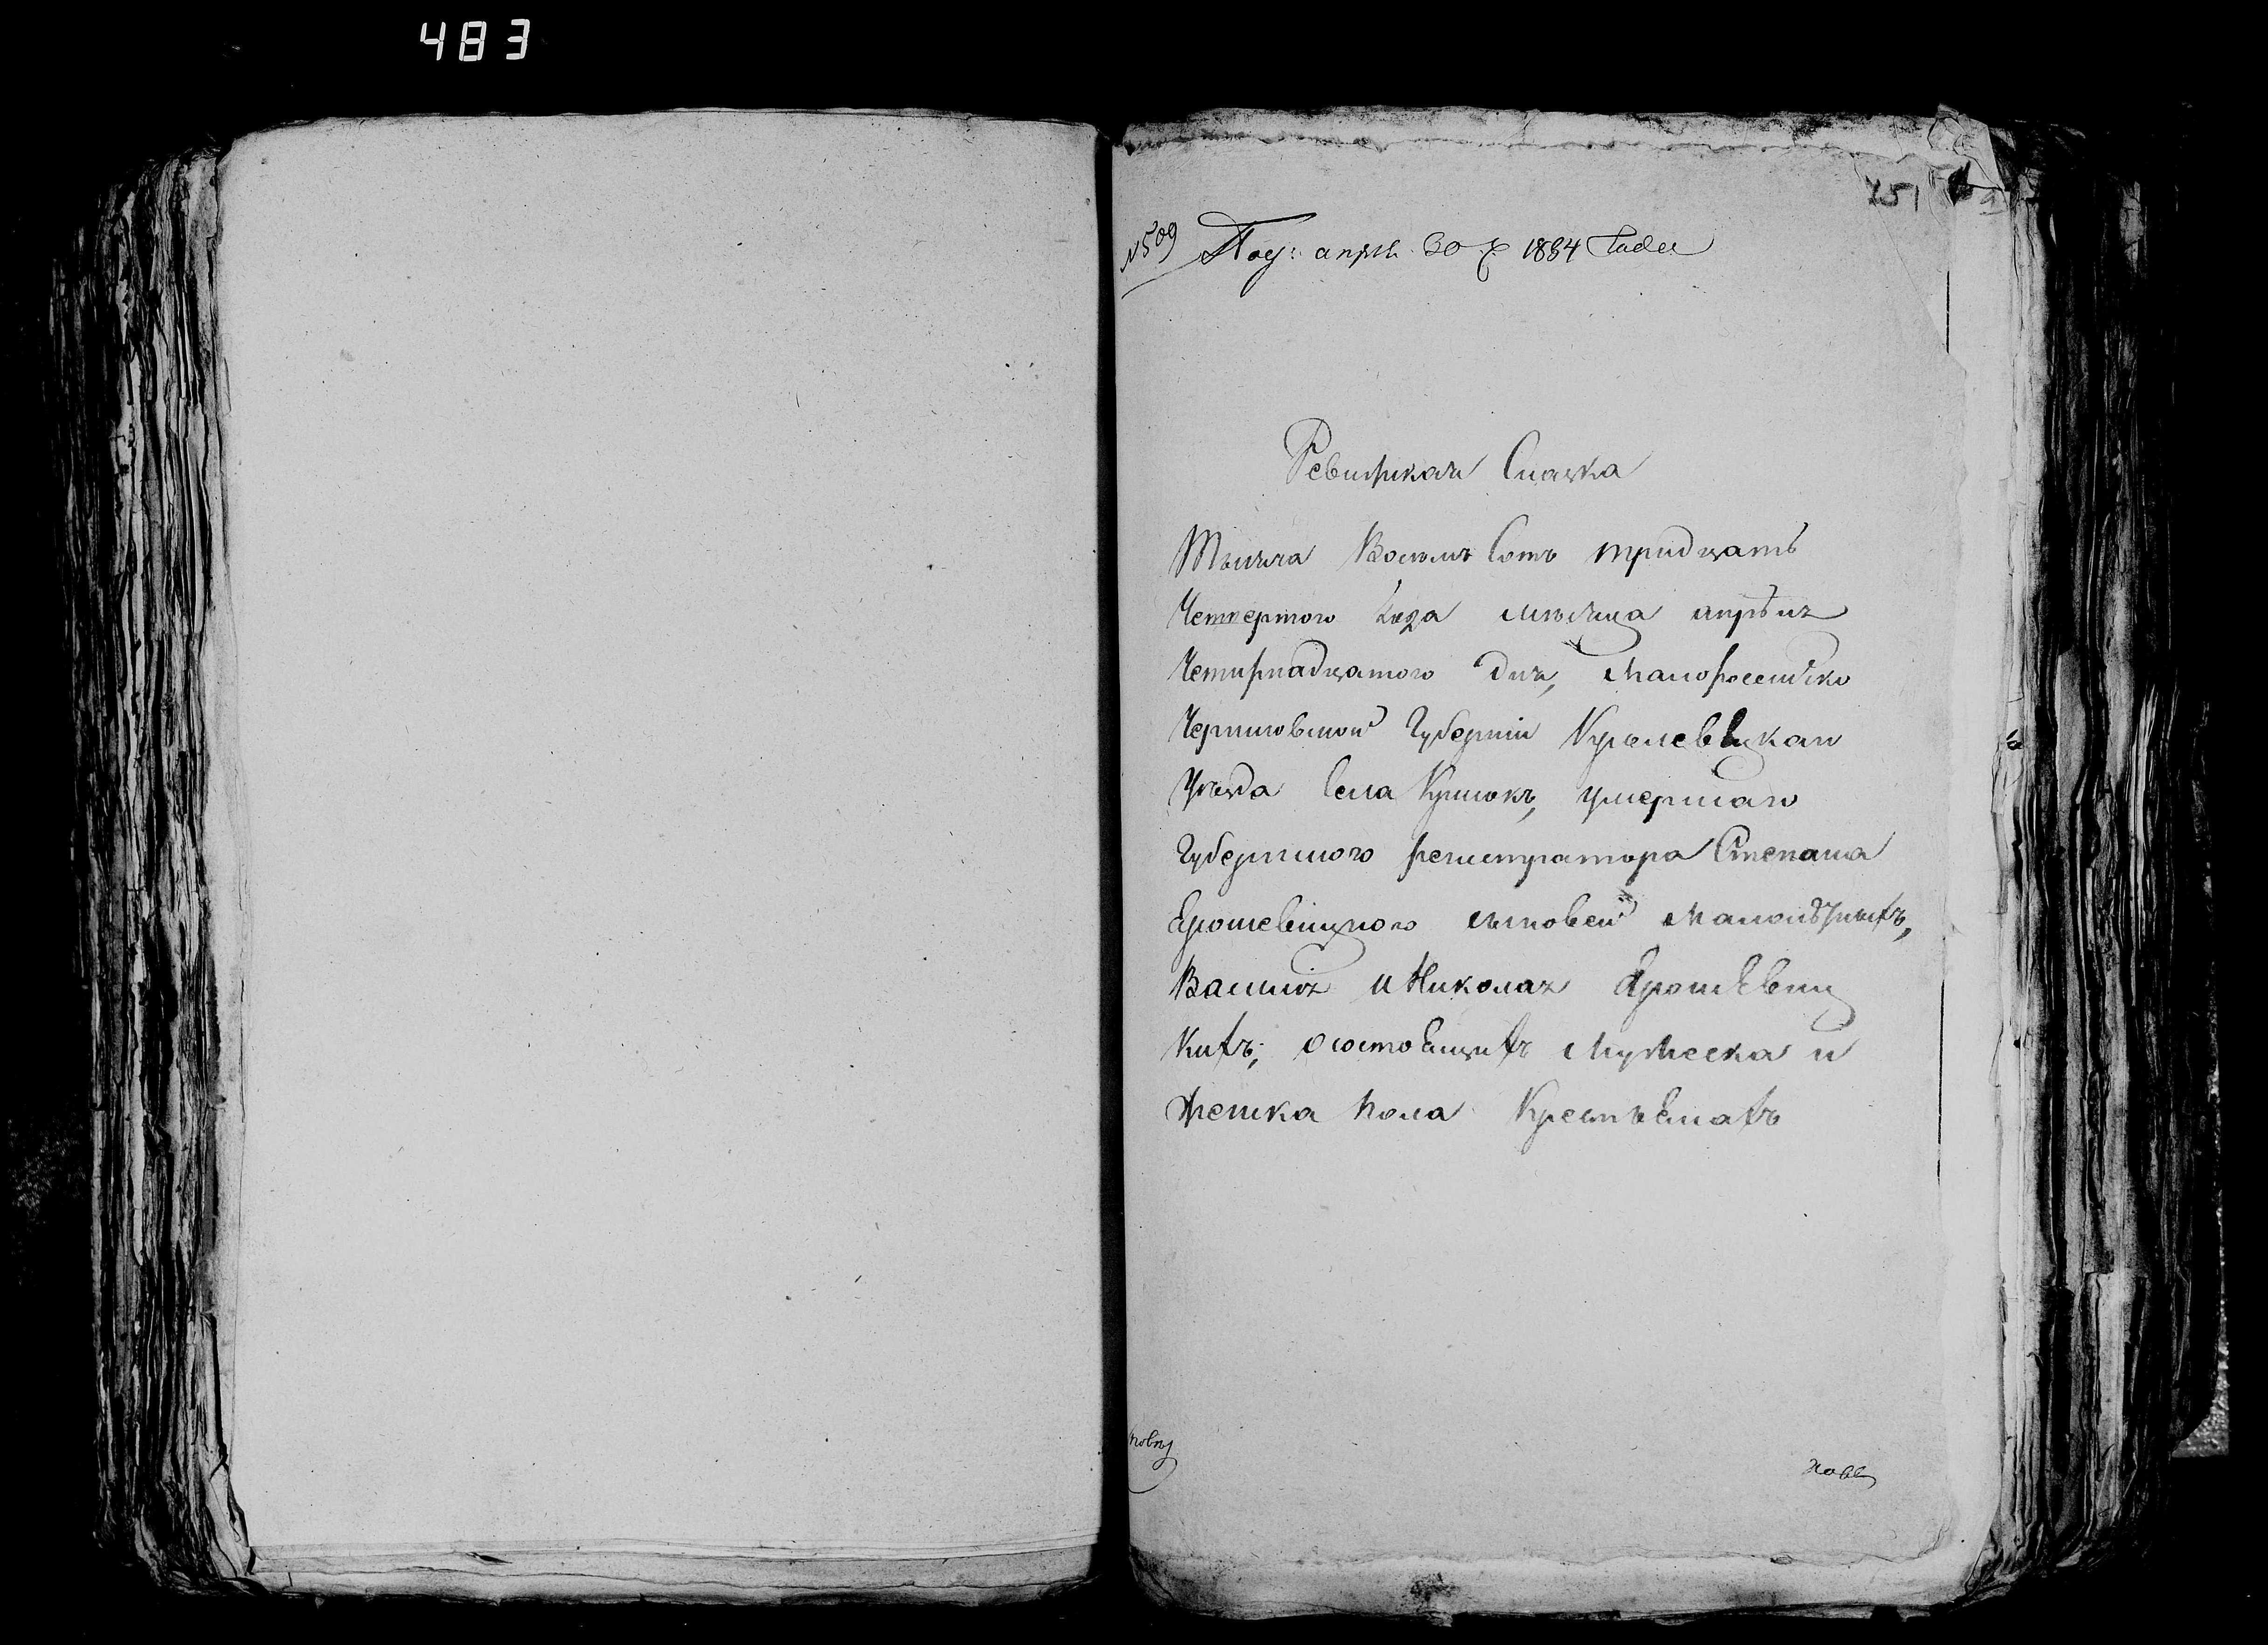 483
251
№ 509 Пол: апрел 30 1834 года
Ревизская Сказка
Тысяча Восемь Сотъ тридцать
Четвертого года месяца апреля
Четирнадцатого дня, малороссийско
Черниговской Губернии Кролевецкаго
Уезда Села Кришокъ, умершаго
Губернского регистратора Степана
Ерошевицкого синовей малолетнихъ,
Василия и Николая Ерошевиц
кихъ, о состоящихъ мужеска и
женска пола Крестьянахъ